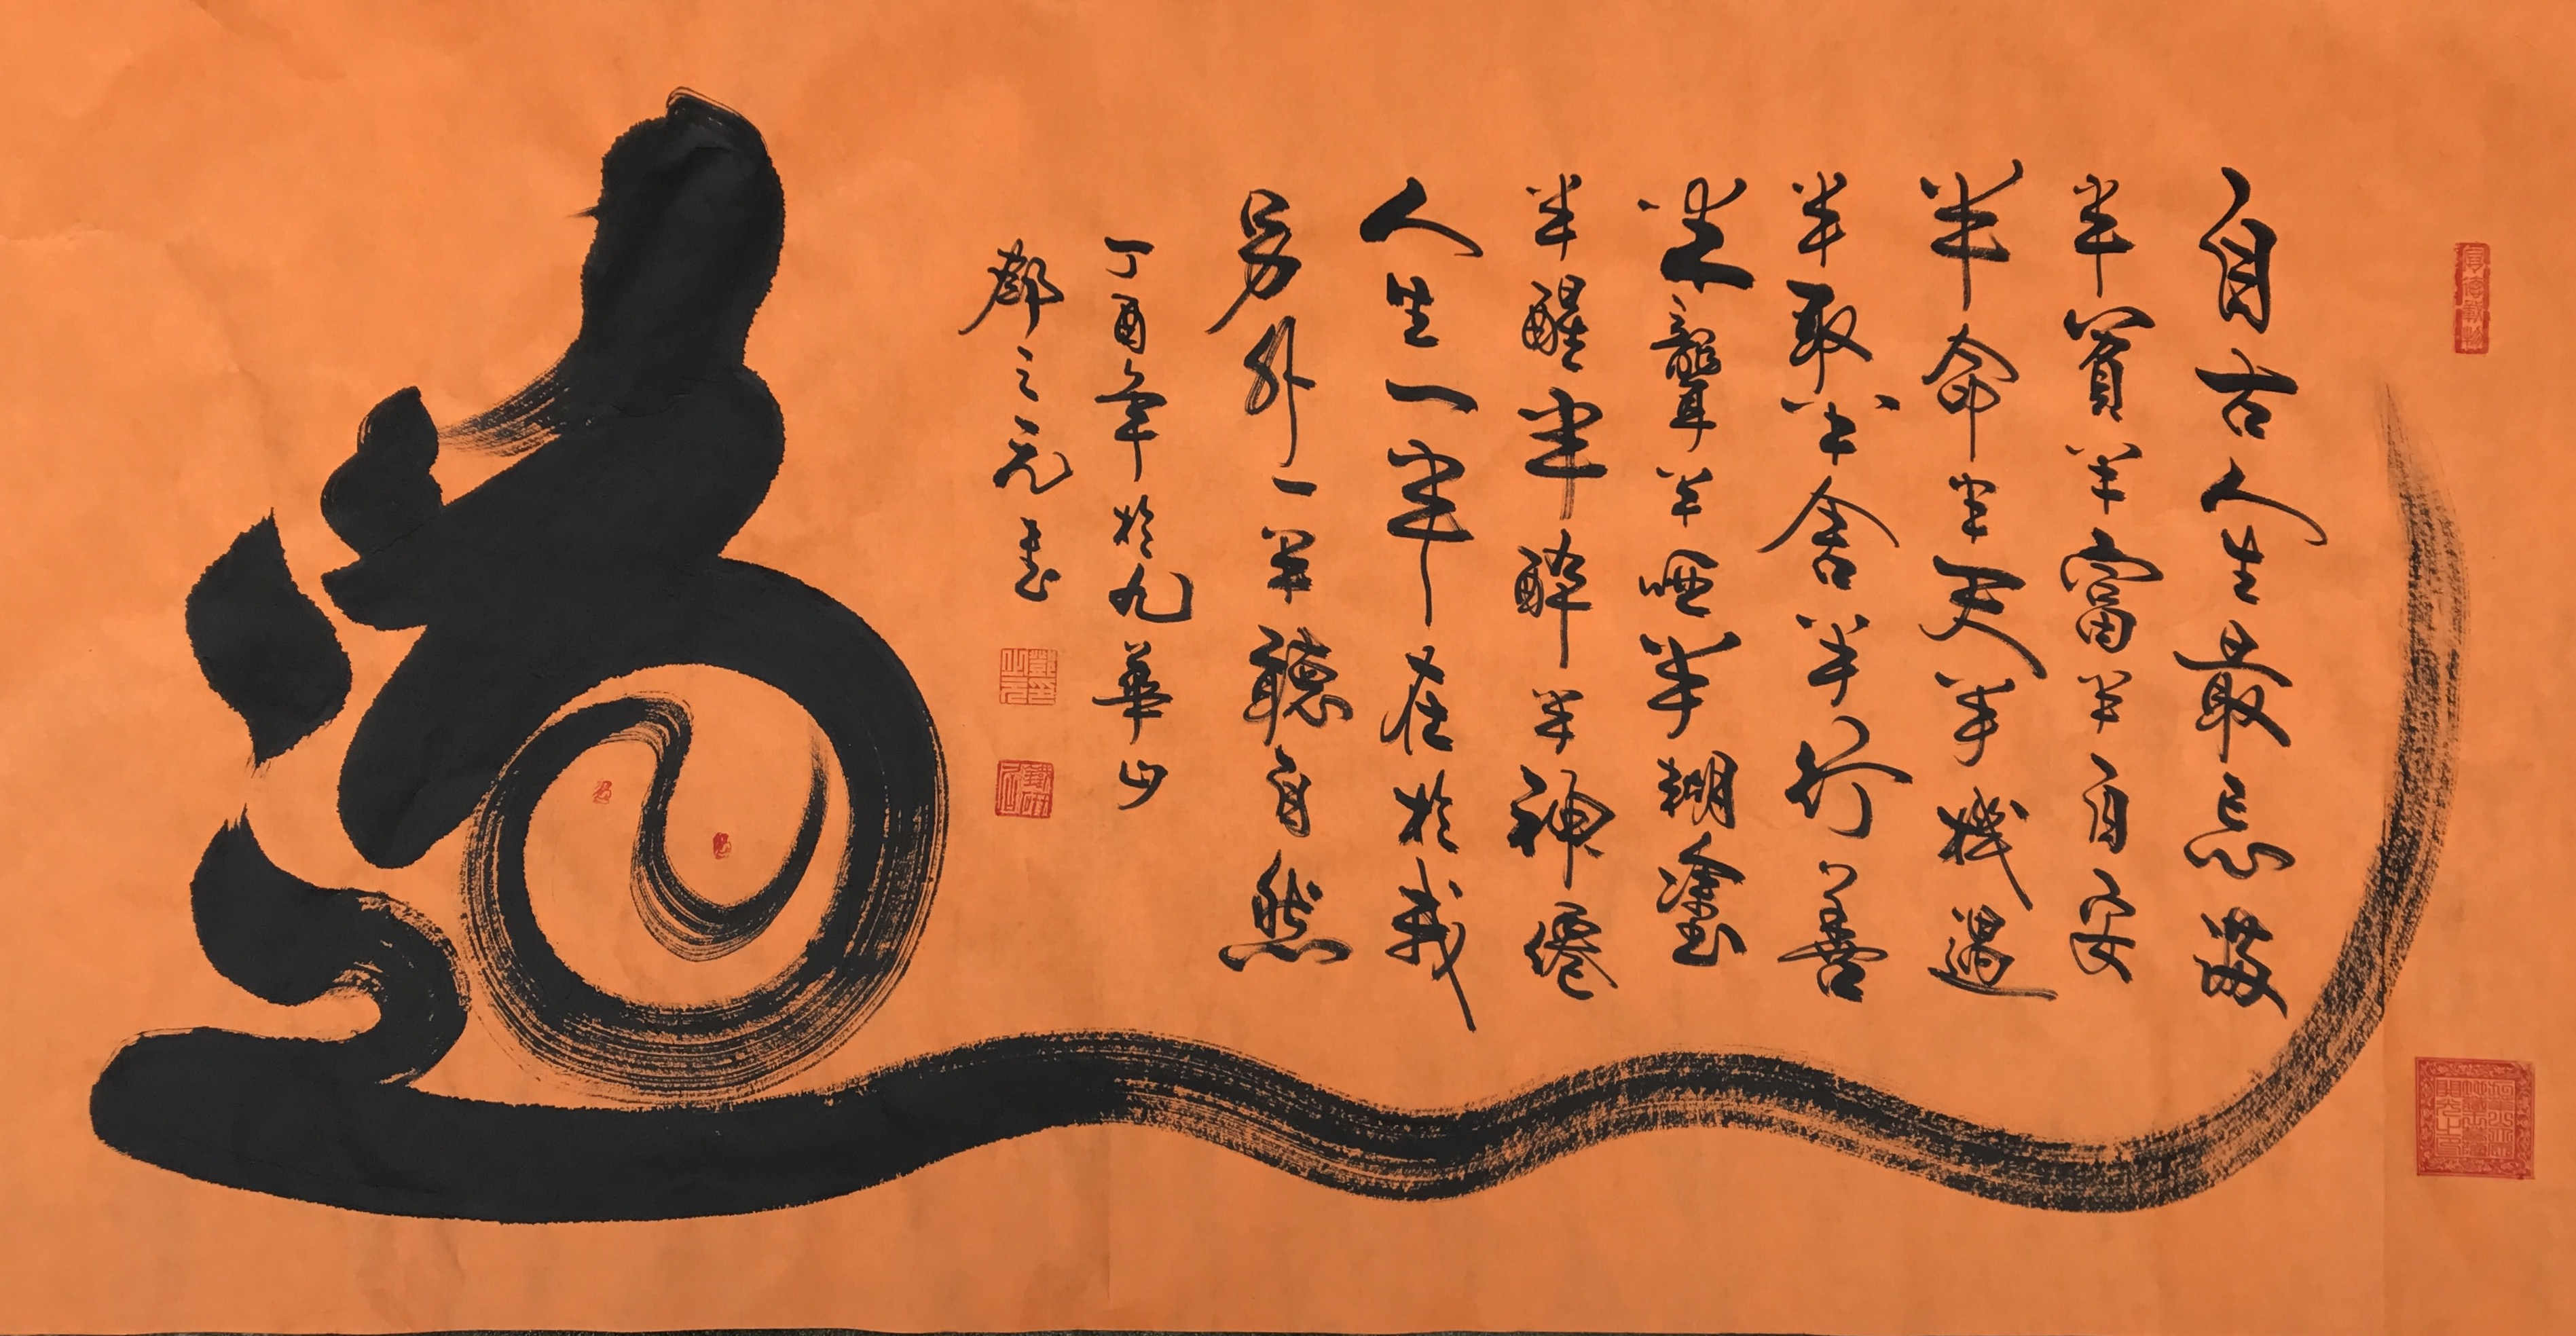 自古人生最忌滿
半貧半富半自安
半命半天半機遇
半取半舍半行善
半聾半啞半糊塗
半醒半醉半神僊
人生一半在於我
另外一半聽自然
丁酉年於九華山
鄭之元書
道